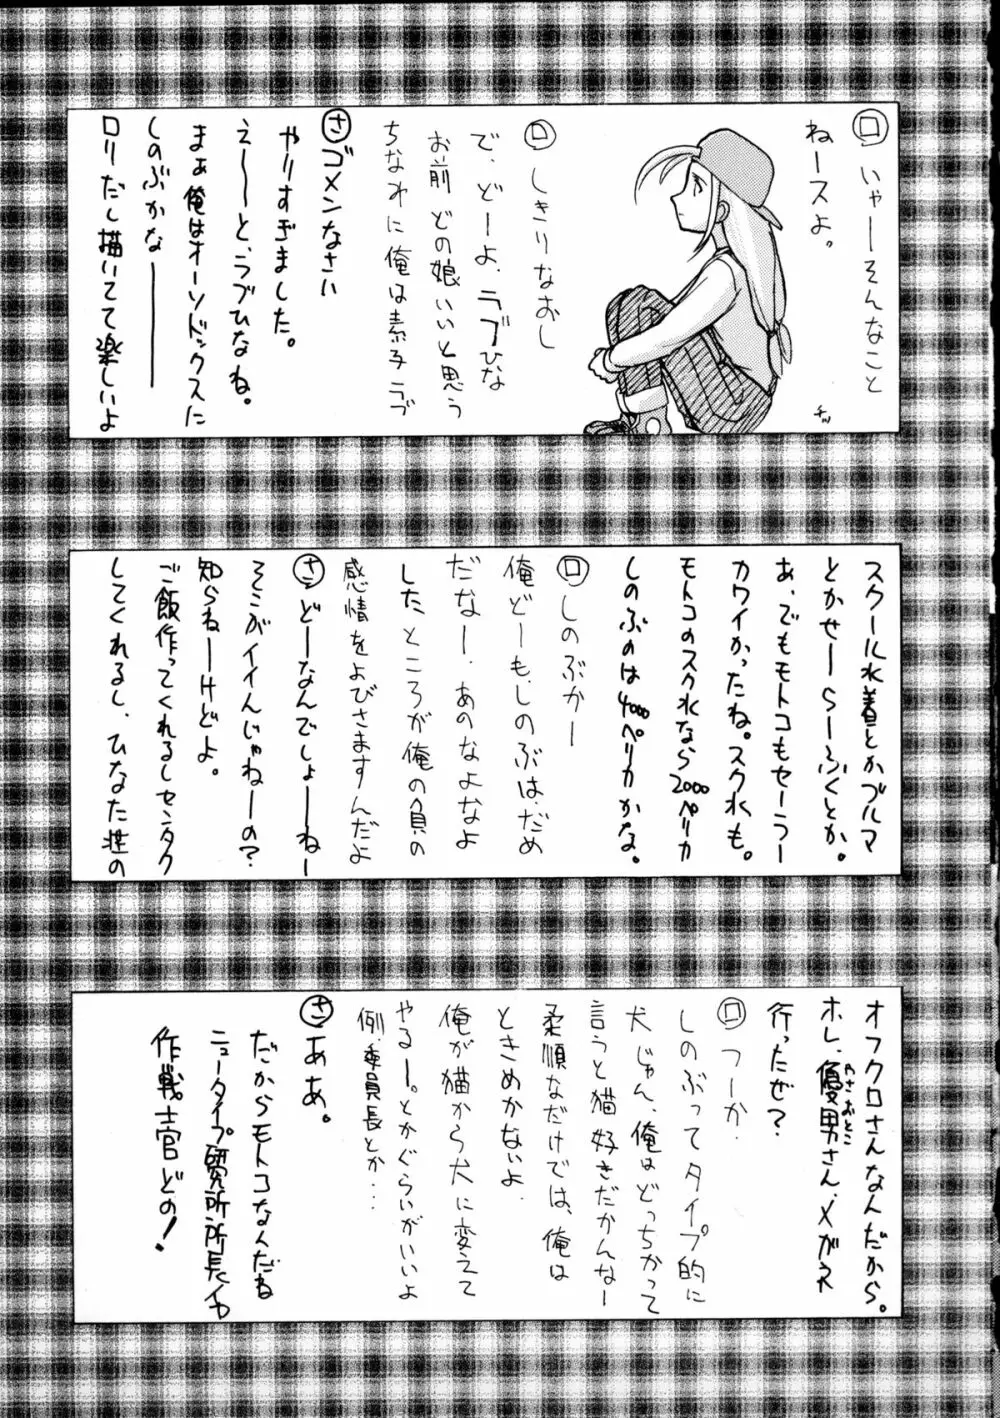 ロ いゃーそんなこと
ねースよ。
ロ しきりなおし
で、どーよ、ラブひな
お前 どの娘いいと思う
ちなみに俺は素子ラブ
さ ゴメンなさい
やりすぎました。
え〜〜と、ラブひなね。
まぁ俺はオーソドックスに
しのぶかなーーー
ロリだし描いてて楽しいよ
スクール水着とかブルマ
とかせーらーふくとか。
あ、でもモトコもセーラー
カワイかったね。スク水も。
モトコのスク水なら2000ペリカ
しのぶのは4000ペリカかな。
ロ しのぶかー
俺どーも、しのぶは、だめ
だなー、あのなよなよ
した、ところが俺の負の
感情をよびさますんだよ
さ どーなんでしょーねー
そこがイイんじゃねーの?
知らねーけどよ。
ご飯作ってくれるしセンタク
してくれるし、ひなた荘の
オフクロさんなんだから。
ホレ、優男さん、メガネ
やさおとこ
行ったぜ?
ロ つーか、
しのぶってタイプ的に
犬じゃん、俺はどっちかって
言うと猫好きだかんなー
柔順なだけでは、俺は
ときめかないよ
俺が猫から犬に変えて
やるー。とかぐらいがいいよ
例、委員長とか…
さ ああ。
だからモトコなんだね
ニュータイプ研究所所長、
作戦士官どの!